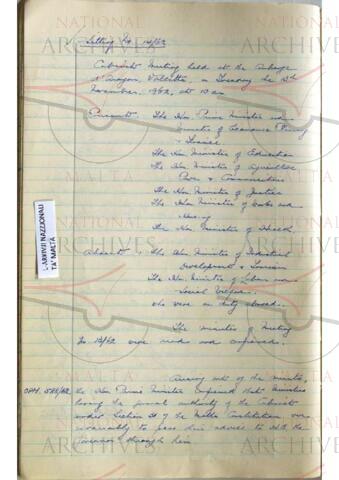 Sitting No. 14/62
Cabinet Meeting held at the Auberge
d'Aragon, Valletta, on Tuesday the
November, 1962, at 10 am
Present: The Hon. Prime Minister and
Minister of Economic Planning
& Finance
The Hon. Minister of Education
The Hon. Minister of Agriculture,
Power & Communications
The Hon. Minister of Justice
The Hon. Minister of Works and
Housing
The Hon. Minister of Health
Absent: The Hon. Minister of Industrial
Development & Tourism
The Hon. Minister of Labour and
Social Welfare
who were on duty abroad.
The minutes of Meeting
No 13/62 were read and confirmed.
Arising out of the minutes,
OPM. 588/62 the Hon. Prime Minister informed that Ministers
having the general authority of the Cabinet
under Section of the Malta Constitution, were
invariably to pass their advice to H.E. the
Governor through him
L-ARKIVJI NAZZJONALI
TA' MALTA
NATIONAL
ARCHIVES